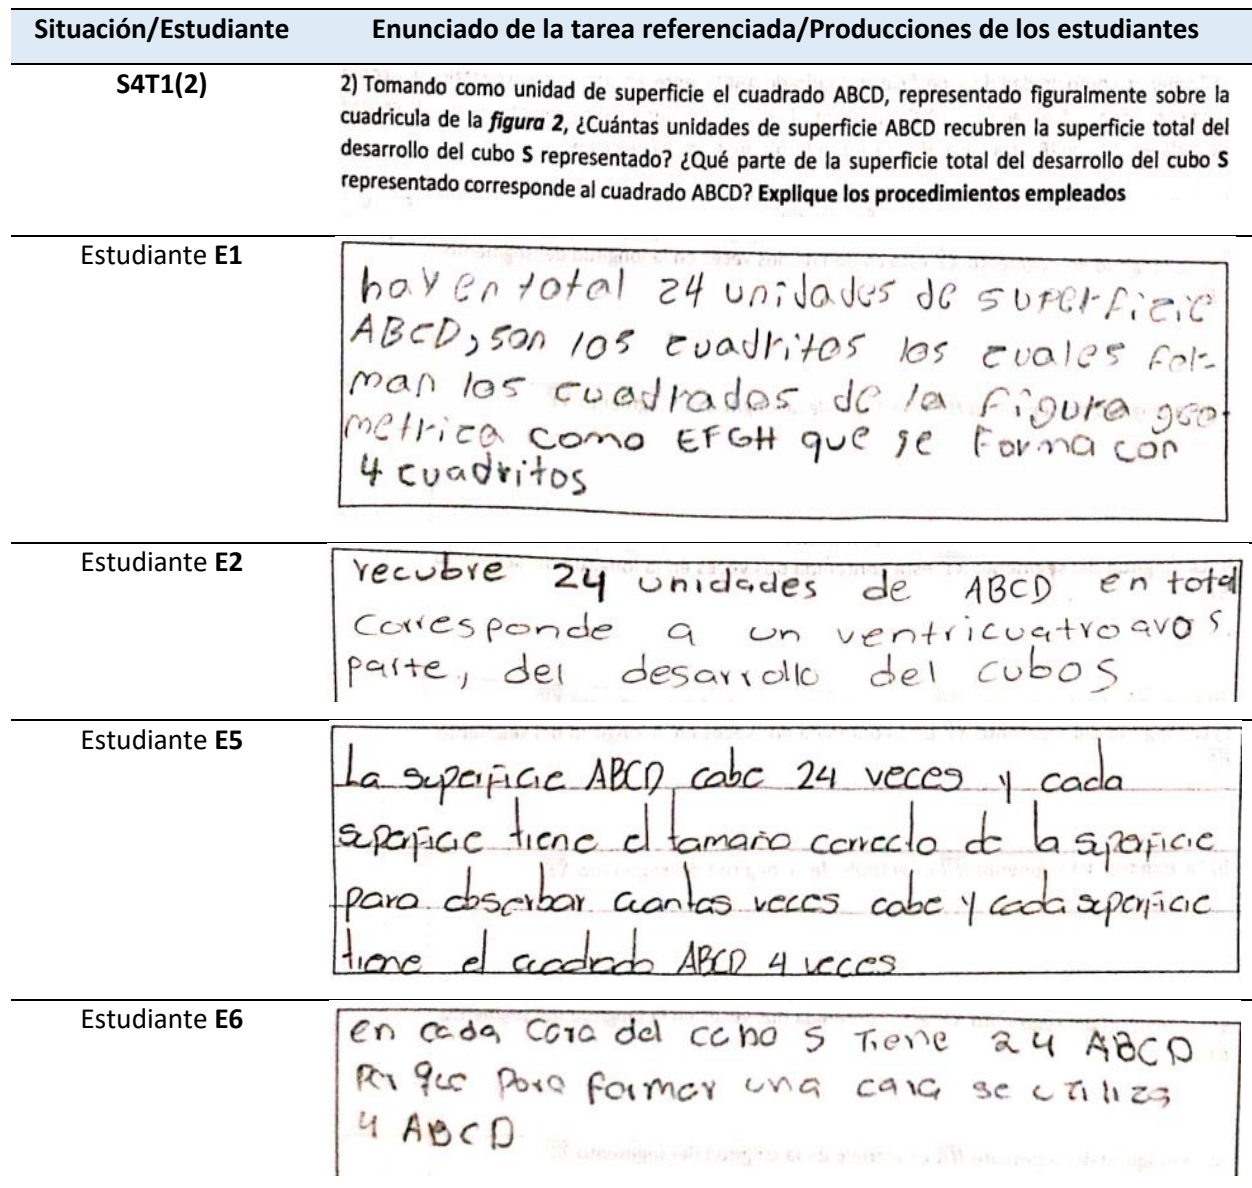 Situación/Estudiante Enunciado de la tarea referenciada/Producciones de los estudiantes
S4T1(2)
2) Tomando como unidad de superficie el cuadrado ABCD, representado figuralmente sobre la
cuadricula de la figura 2, ¿Cuántas unidades de superficie ABCD recubren la superficie total del
desarrollo del cubo S representado? ¿Qué parte de la superficie total del desarrollo del cubo S
representado corresponde al cuadrado ABCD? Explique los procedimientos empleados
Estudiante E1
hay en total 24 unidades de superficie
ABCD, son los cuadritos los cuales for-
man los cuadrados de la figura geo-
metrica como EFGH que se forma con
4 cuadritos
Estudiante E2
recubre 24 unidades de ABCD en total
corresponde a un ventricuatroavos
parte, del desarrollo del cubo S
Estudiante E5
La superficie ABCD cabe 24 veces y cada
superficie tiene el tamaño correcto de la superficie
para obserbar cuantas veces cabe y cada superficie
tiene el cuadrado ABCD 4 veces
Estudiante E6
en cada cara del cubo S Tiene 24 ABCD
por que para formar una cara se utiliza
4 ABCD